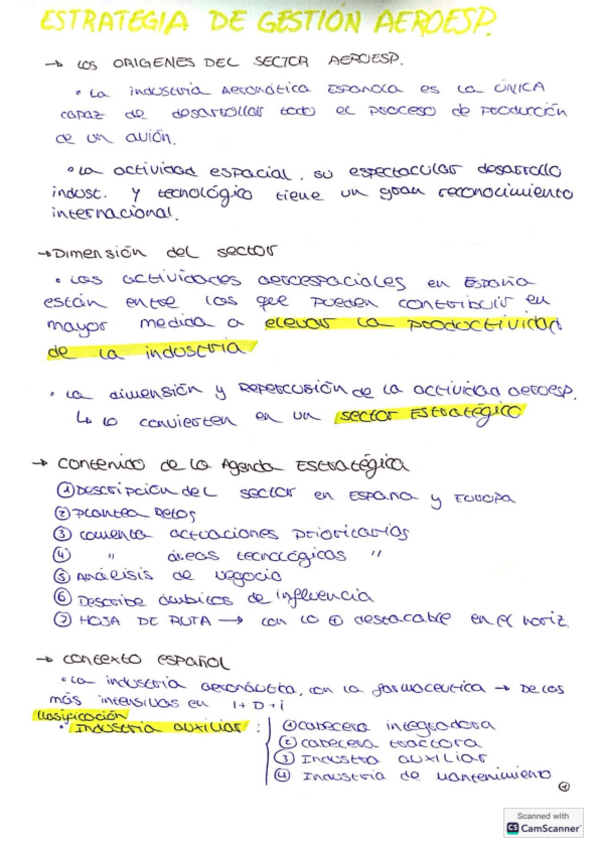 ESTRATEGIA DE GESTIÓN AEROESP.
→ LOS ORÍGENES DEL SECTOR AEROESP.
• La industria Aeronática Española es la ÚNICA
capaz de desarrollar todo el proceso de producción
de un avión.
• La actividad espacial, su espectacular desarrollo
indust. y tecnológico tiene un gran reconocimiento
internacional.
→ Dimensión del sector
• Las actividades aeroespaciales en España
están entre las que pueden contribuir en
mayor medida a elevar la productividad
de la industria
• La dimensión y repercusión de la actividad aeroesp.
↳ lo convierten en un sector Estratégico
→ Contenido de la Agenda Estratégica
① Descripción del sector en España y Europa
② Plantea Retos
③ comenta actuaciones prioritarias
④ " áreas tecnológicas "
⑤ Análisis de negocio
⑥ Describe ámbitos de influencia
⑦ HOJA DE RUTA → con lo ⊕ destacable en el horiz.
→ Contexto español
• La industria aeronáutica, con la farmaceutica → De las
más intensivas en I+D+i
Clasificación
• Industria auxiliar : ① cabecera integradora
② cabecera tractora
③ Industra auxiliar
④ Industria de mantenimiento
①
Scanned with
CS CamScanner